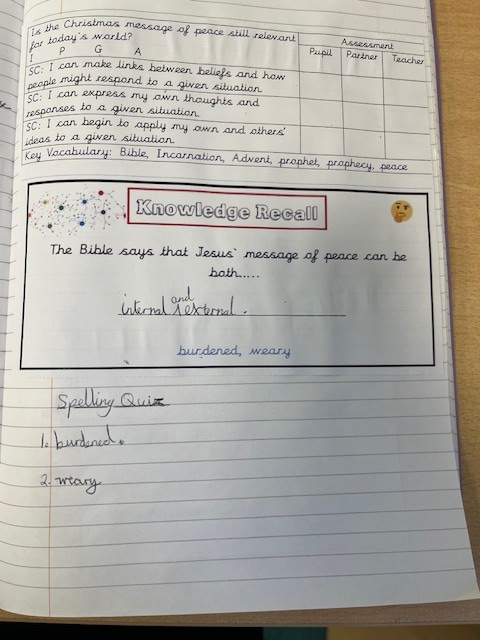 Is the Christmas message of peace still relevant
for today's world?
I P G A
Assessment
Pupil Partner Teacher
SC: I can make links between beliefs and how
people might respond to a given situation.
SC: I can express my own thoughts and
responses to a given situation.
SC: I can begin to apply my own and others'
ideas to a given situation.
Key Vocabulary: Bible, Incarnation, Advent, prophet, prophecy, peace
Knowledge Recall
The Bible says that Jesus' message of peace can be
both.....
internal and external.
burdened, weary
Spelling Quiz
1. burdened.
2. weary